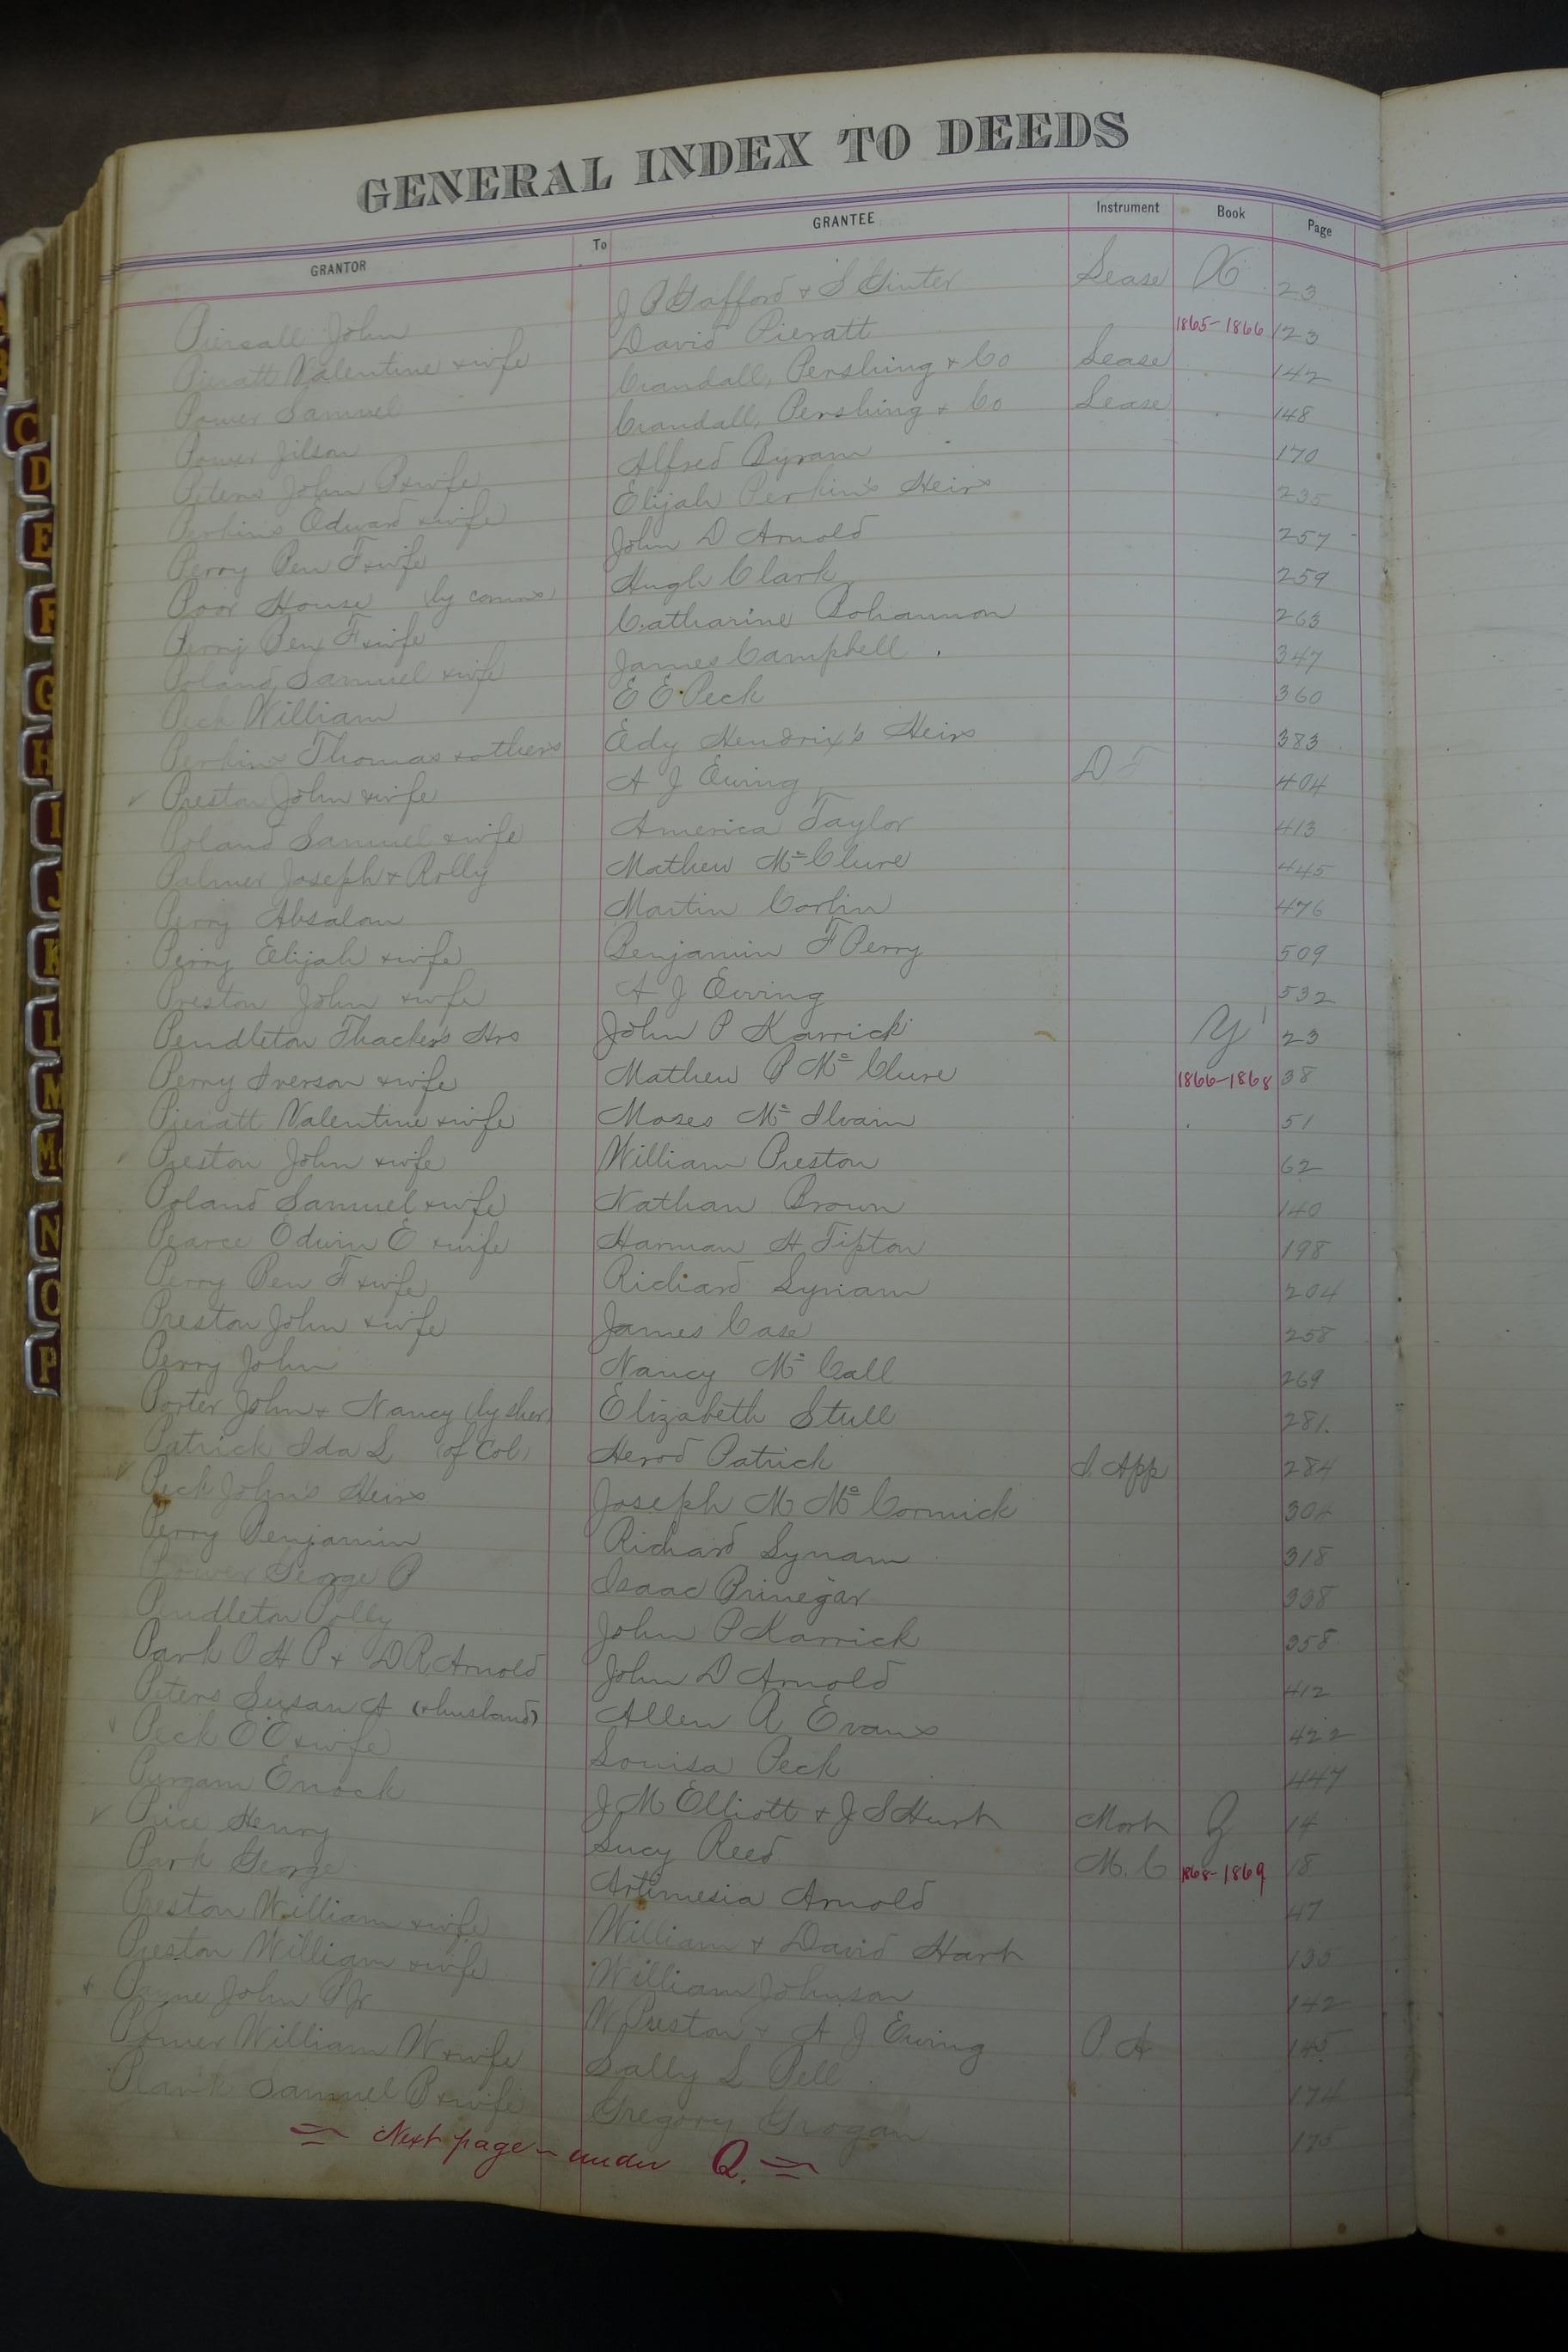 GENERAL INDEX TO DEEDS
GRANTOR To GRANTEE Instrument Book Page
Piersall John J P Gafford & S Ginter Lease X 23
Pieratt Valentine & wife David Pieratt 1865-1866 123
Power Samuel Crandall, Pershing & Co Lease 142
Power Jilson Crandall, Pershing & Co Lease 148
Peters John P & wife Alfred Byram 170
Perkins Edward & wife Elijah Perkin's Heirs 235
Perry Ben F & wife John D Arnold 257
Poor House (by comrs) Hugh Clark 259
Perry Ben F & wife Catharine Bohannon 263
Poland Samuel & wife James Campbell 347
Peck William E E Peck 360
Perkins Thomas & others Edy Hendrix's Heirs 383
Preston John & wife A J Ewing D 404
Poland Samuel & wife America Taylor 413
Palmer Joseph & Rolly Mathew Mc Clure 445
Perry Absalom Martin Corbin 476
Perry Elijah & wife Benjamin F Perry 509
Preston John & wife A J Ewing 532
Pendleton Thacker's Hrs John P Karrick Y 23
Perry Iverson & wife Mathew P Mc Clure 1866-1868 38
Pieratt Valentine & wife Moses Mc Ilvain 51
Preston John & wife William Preston 62
Poland Samuel & wife Nathan Brown 140
Pearce Edwin E & wife Harman H Tipton 198
Perry Ben F & wife Richard Lynam 204
Preston John & wife James Case 258
Perry John Nancy Mc Call 269
Porter John & Nancy (by sher) Elizabeth Stull 281
Patrick Ida L (of Col) Herod Patrick I. App 284
Peck John's Heirs Joseph M Mc Cormick 304
Perry Benjamin Richard Lynam 318
Power George P Isaac Brinegar 338
Pendleton Polly John P Karrick 358
Park O H P & D R Arnold John D Arnold 412
Peters Susan A (& husband) Allen A Evans 422
Peck E E & wife Louisa Peck 447
Pergam Enock J M Elliott & J S Hurt Mort Z 14
Price Henry Lucy Reed M. C 1868-1869 18
Park George Artimesia Arnold 47
Preston William & wife William & David Hart 130
Preston William & wife William Johnson 142
Payne John P Jr W Preston & A J Ewing P. A 145
Power William W & wife Sally L Pell 174
Plank Samuel B & wife Gregory Grogan 175
Next page - under Q.
C
D
E
F
G
H
I
J
K
L
M
Mc
N
O
P